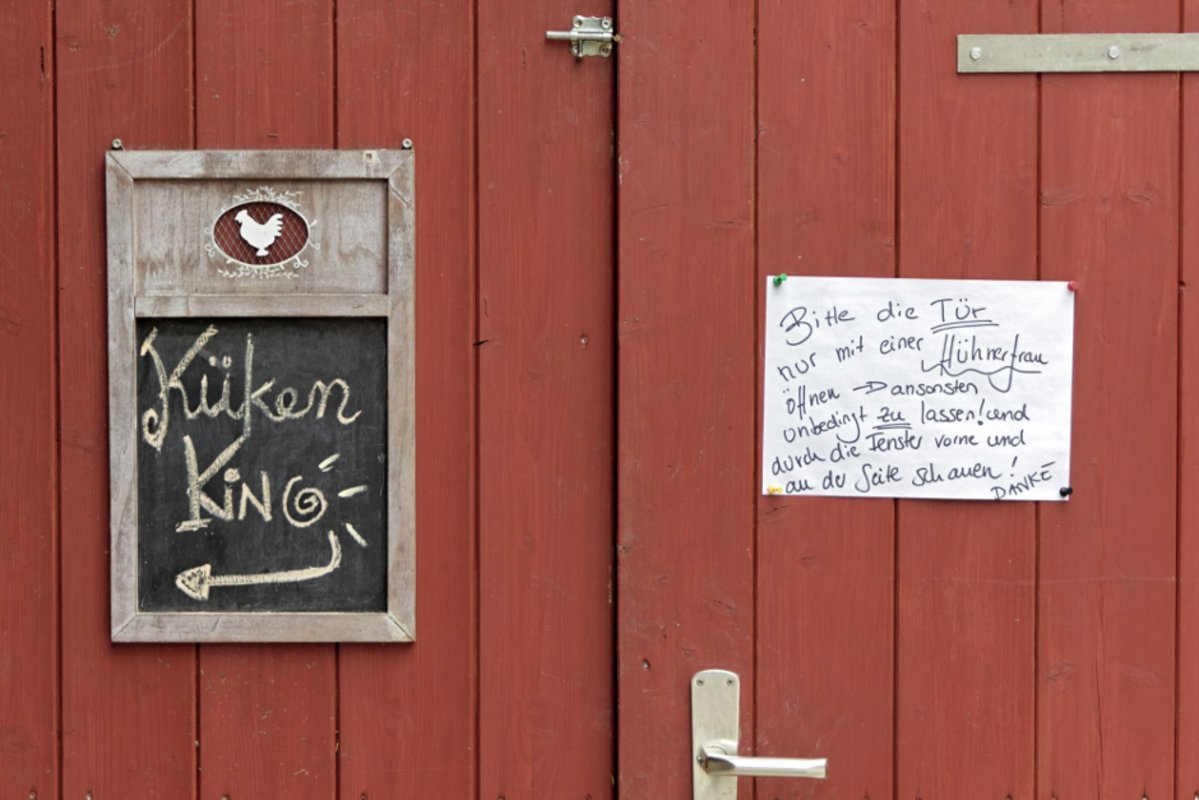 Küken
KiNG
Bitte die Tür
nur mit einer Hühnerfrau
öffnen → ansonsten
unbedingt zu lassen! und
durch die Fenster vorne und
an der Seite schauen!
DANKE